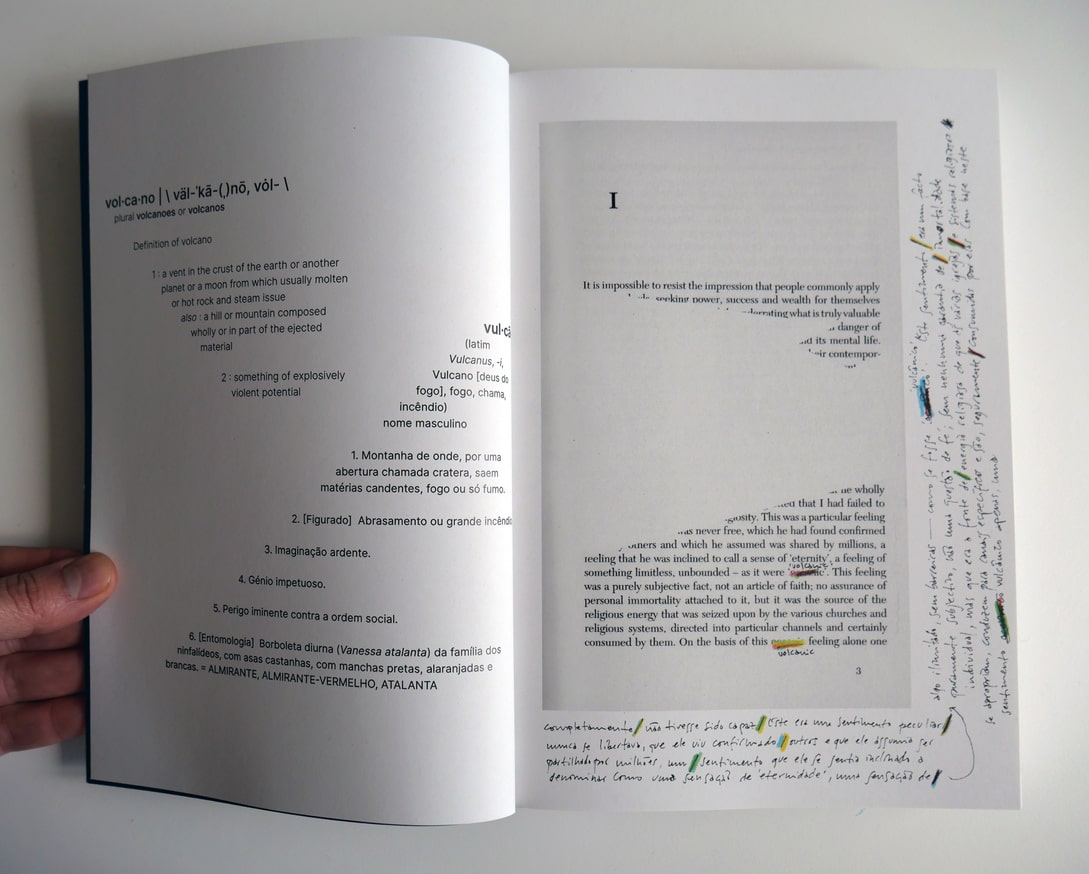 vol·ca·no | \ väl-ˈkā-(ˌ)nō, vȯl- \
plural volcanoes or volcanos
Definition of volcano
1 : a vent in the crust of the earth or another
planet or a moon from which usually molten
or hot rock and steam issue
also : a hill or mountain composed
wholly or in part of the ejected
material
2 : something of explosively
violent potential
vul·cã
(latim
Vulcanus, -i,
Vulcano [deus do
fogo], fogo, chama,
incêndio)
nome masculino
1. Montanha de onde, por uma
abertura chamada cratera, saem
matérias candentes, fogo ou só fumo.
2. [Figurado] Abrasamento ou grande incêndio
3. Imaginação ardente.
4. Génio impetuoso.
5. Perigo iminente contra a ordem social.
6. [Entomologia] Borboleta diurna (Vanessa atalanta) da família dos
ninfalídeos, com asas castanhas, com manchas pretas, alaranjadas e
brancas. = ALMIRANTE, ALMIRANTE-VERMELHO, ATALANTA
I
It is impossible to resist the impression that people commonly apply
seeking power, success and wealth for themselves
what is truly valuable
danger of
its mental life.
contempor-
wholly
that I had failed to
This was a particular feeling
was never free, which he had found confirmed
and which he assumed was shared by millions, a
feeling that he was inclined to call a sense of 'eternity', a feeling of
something limitless, unbounded – as it were 'volcanic'. This feeling
was a purely subjective fact, not an article of faith; no assurance of
personal immortality attached to it, but it was the source of the
religious energy that was seized upon by the various churches and
religious systems, directed into particular channels and certainly
consumed by them. On the basis of this feeling alone one
volcanic
3
completamente / não tivesse sido capaz / Este era um sentimento peculiar /
nunca se libertava, que ele viu confirmado / outros e que ele assumia ser
partilhado por milhões, um / sentimento que ele se sentia inclinado a
denominar como uma sensação de 'eternidade', uma sensação de /
algo ilimitado, sem barreiras — como se fosse 'vulcânico'. Este sentimento / era um facto
puramente subjectivo, não uma questão de fé; sem nenhuma garantia de / imortalidade
individual, mas que era a fonte de / energia religiosa de que as várias igrejas / e sistemas religiosos
se apropriam, conduzem para canais específicos e são, seguramente / consumidas por elas. Com base neste
sentimento vulcânico apenas, uma